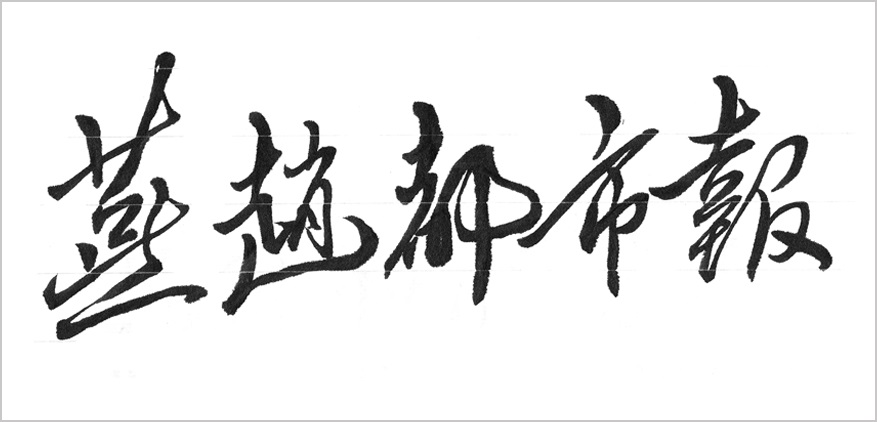 燕趙都市報